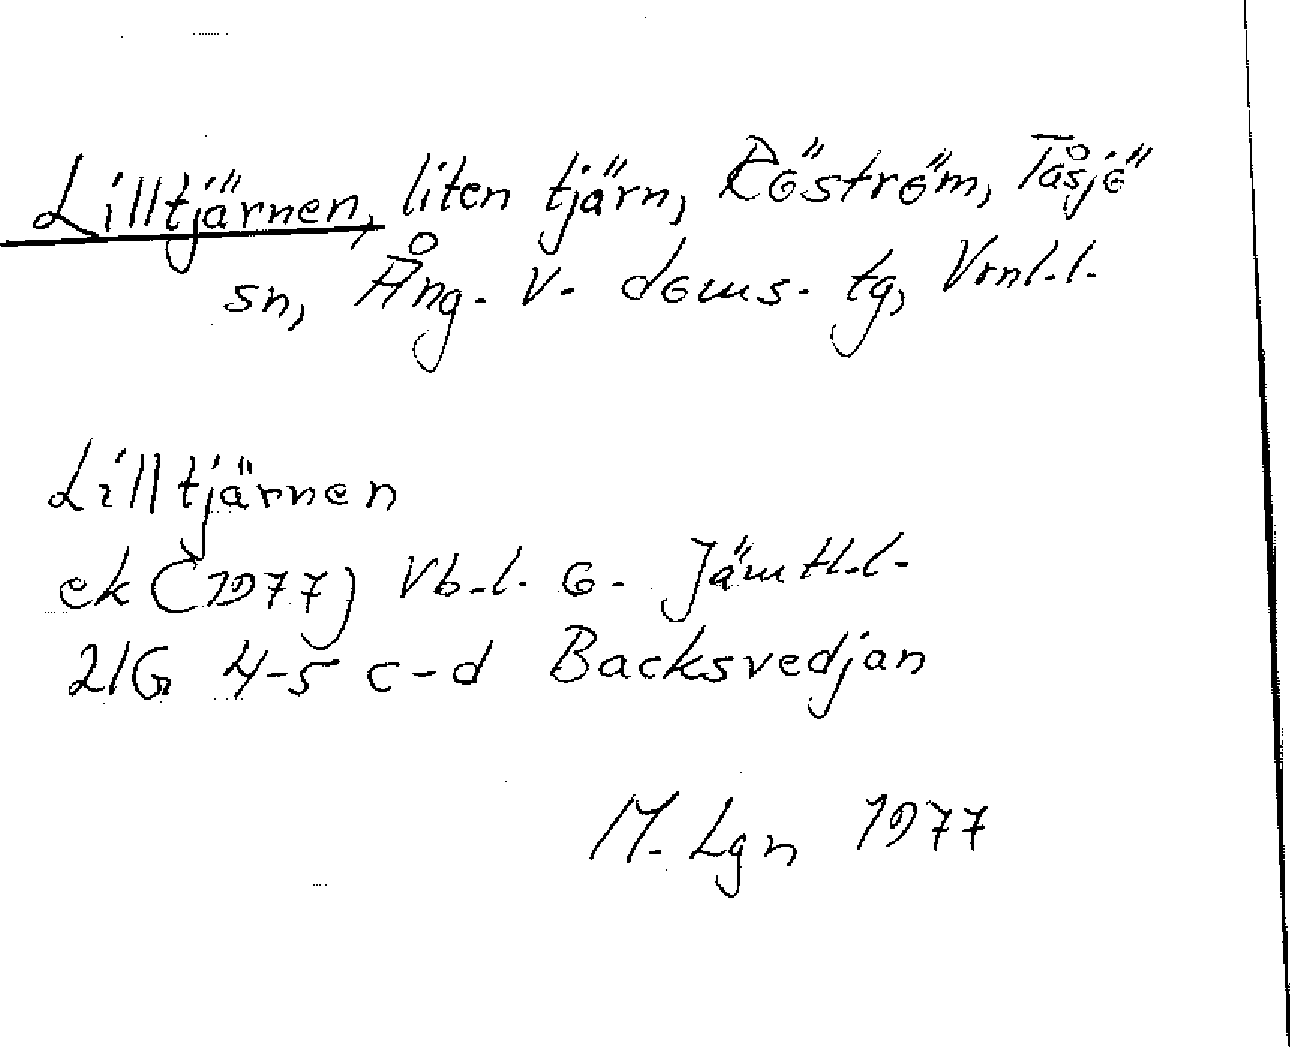 Lilltjärnen, liten tjärn, Röström, Tåsjö
sn, Ång. V. doms. tg, Vrnl.l.
Lilltjärnen
ek (1977) Vb.l. o. Jämtl.l.
21G 4-5 c-d Backsvedjan
M. Lgn 1977